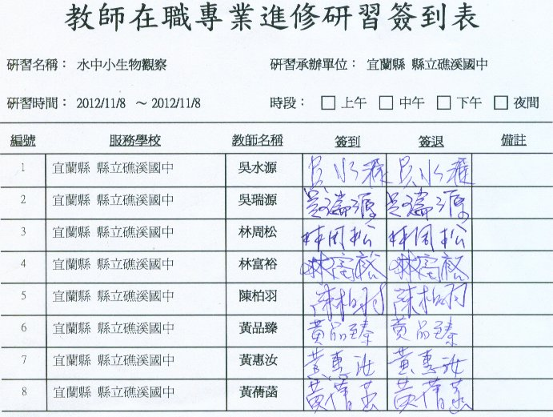 教師在職專業進修研習簽到表
研習名稱： 水中小生物觀察 研習承辦單位： 宜蘭縣 縣立礁溪國中
研習時間： 2012/11/8 ～2012/11/8 時段： □上午 □中午 □下午 □夜間
編號 服務學校 教師名稱 簽到 簽退 備註
1 宜蘭縣 縣立礁溪國中 吳水源 吳水源 吳水源
2 宜蘭縣 縣立礁溪國中 吳瑞源 吳瑞源 吳瑞源
3 宜蘭縣 縣立礁溪國中 林周松 林周松 林周松
4 宜蘭縣 縣立礁溪國中 林富裕 林富裕 林富裕
5 宜蘭縣 縣立礁溪國中 陳柏羽 陳柏羽 陳柏羽
6 宜蘭縣 縣立礁溪國中 黃品臻 黃品臻 黃品臻
7 宜蘭縣 縣立礁溪國中 黃惠汝 黃惠汝 黃惠汝
8 宜蘭縣 縣立礁溪國中 黃蒨菡 黃蒨菡 黃蒨菡